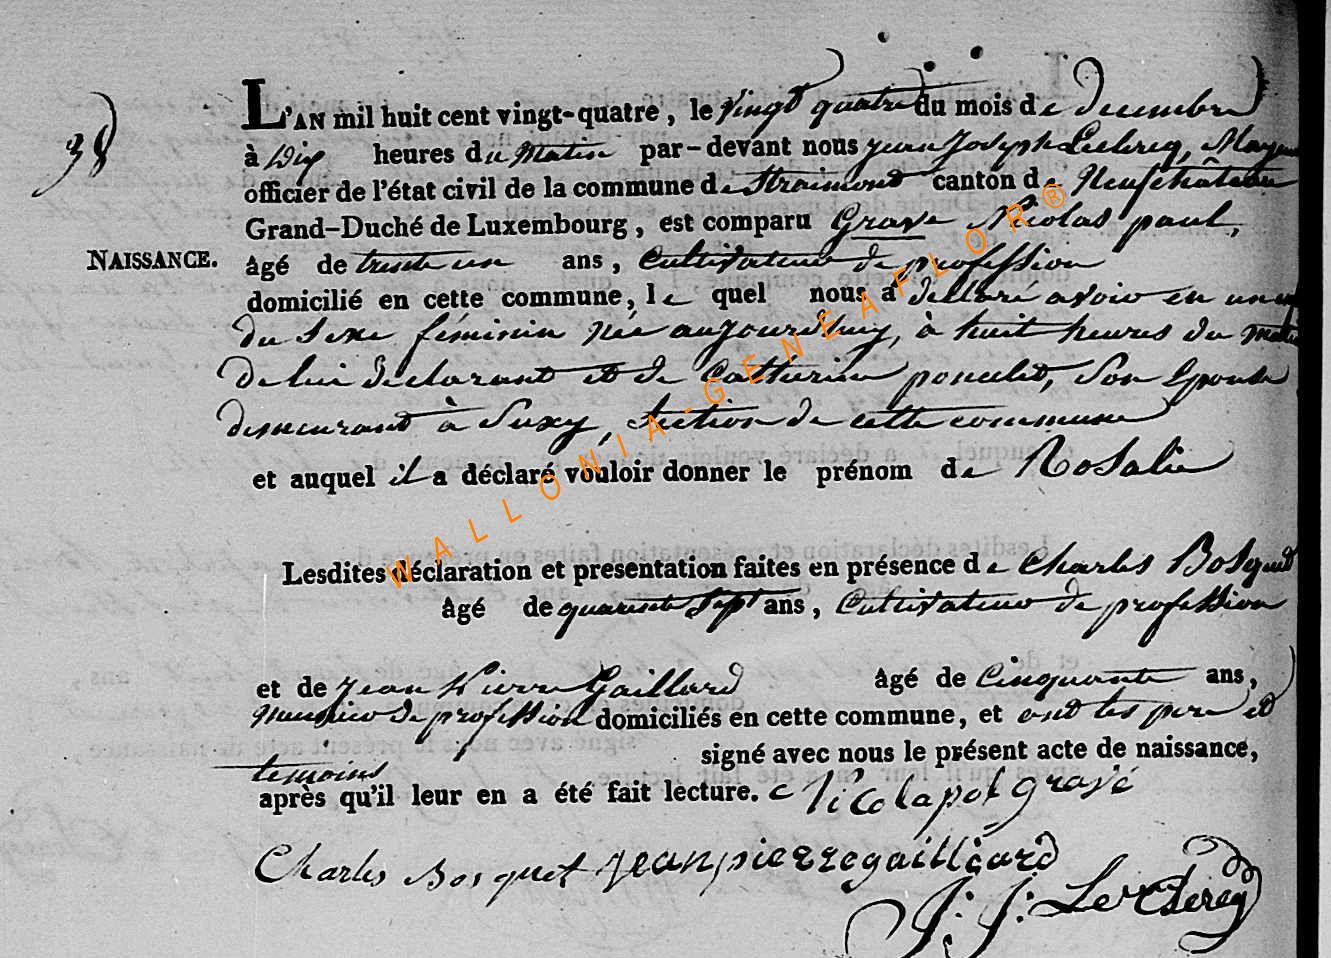 38
L'AN mil huit cent vingt-quatre, le vingt quatre du mois de decembre
à dix heures du matin par-devant nous jean joseph Leclercq, Mayeur
officier de l'état civil de la commune de Straimont canton de Neufchâteau
Grand-Duché de Luxembourg, est comparu Grave Nicolas paul,
NAISSANCE.
âgé de trente un ans, cultivateur de profession
domicilié en cette commune, le quel nous a declaré avoir eu un enf
du sexe féminin née aujourdhuy, à huit heures du matin
de lui declarant et de Catherine poncelet, son Epouse
demeurant à Suxy, section de cette commune
et auquel il a déclaré vouloir donner le prénom de Rosalie
Lesdites déclaration et presentation faites en présence de Charles Bosquet
âgé de quarante sept ans, Cultivateur de profession
et de jean pierre Gaillard âgé de cinquante ans,
de profession domiciliés en cette commune, et ont les pere et
temoins signé avec nous le présent acte de naissance,
après qu'il leur en a été fait lecture. Nicolapol gravé
Charles Bosquet jean pierre gailleard
J: J: LeClercq
WALLONIA-GENEAFLOR®